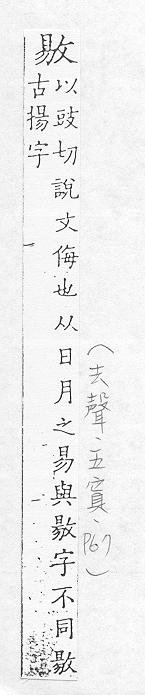 敡
以豉切說文侮也从日月之易與敭字不同敭
古揚字
(去聲、五寘、P67)